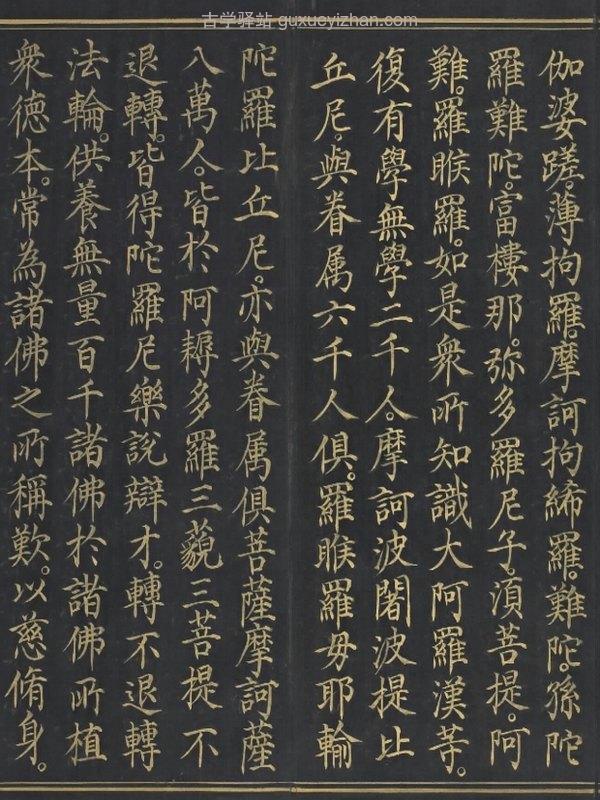 古学驿站 guxueyizhan.com
伽婆蹉。薄拘羅。摩訶拘絺羅。難陀。孫陀
羅難陀。富樓那。弥多羅尼子。湏菩提。阿
難。羅睺羅。如是衆所知識大阿羅漢等。
復有學無學二千人。摩訶波闍波提比
丘尼。與眷属六千人俱。羅睺羅毋耶輸
陀羅比丘尼。亦與眷属俱菩薩摩訶薩
八萬人。皆於阿耨多羅三藐三菩提不
退轉。皆得陀羅尼樂說辯才。轉不退轉
法輪。供養無量百千諸佛於諸佛所植
衆德本。常為諸佛之所稱歎。以慈脩身。